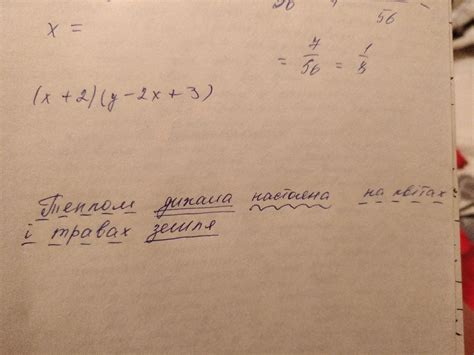 56
x =
= 7/56 = 1/8
(x+2)(y-2x+3)
Теплом дихала настояна на квітах
і травах земля